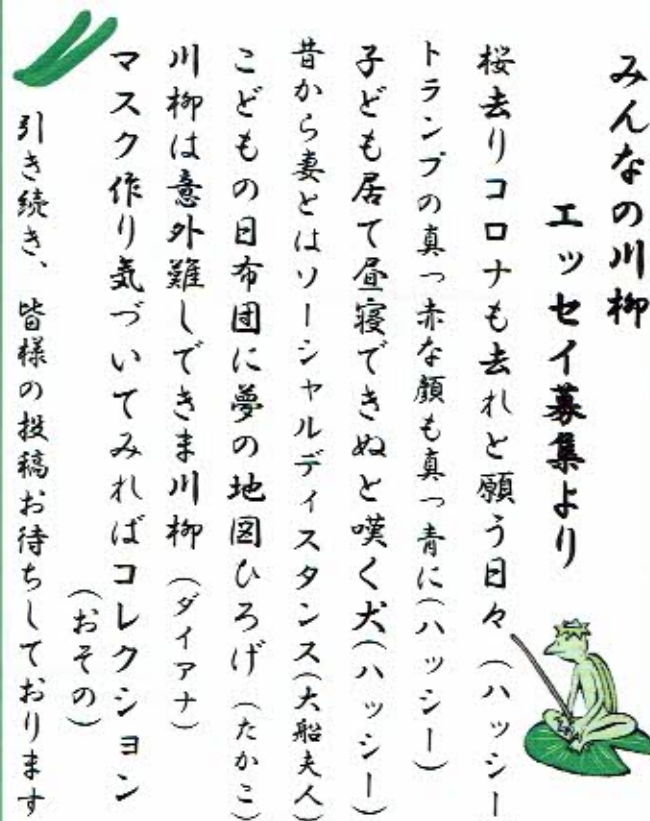 みんなの川柳
エッセイ募集より
桜去りコロナも去れと願う日々（ハッシー
トランプの真っ赤な顔も真っ青に（ハッシー）
子ども居て昼寝できぬと嘆く犬（ハッシー）
昔から妻とはソーシャルディスタンス（大船夫人）
こどもの日布団に夢の地図ひろげ（たかこ）
川柳は意外難しできま川柳（ダイアナ）
マスク作り気づいてみればコレクション
（おその）
引き続き、皆様の投稿お待ちしております